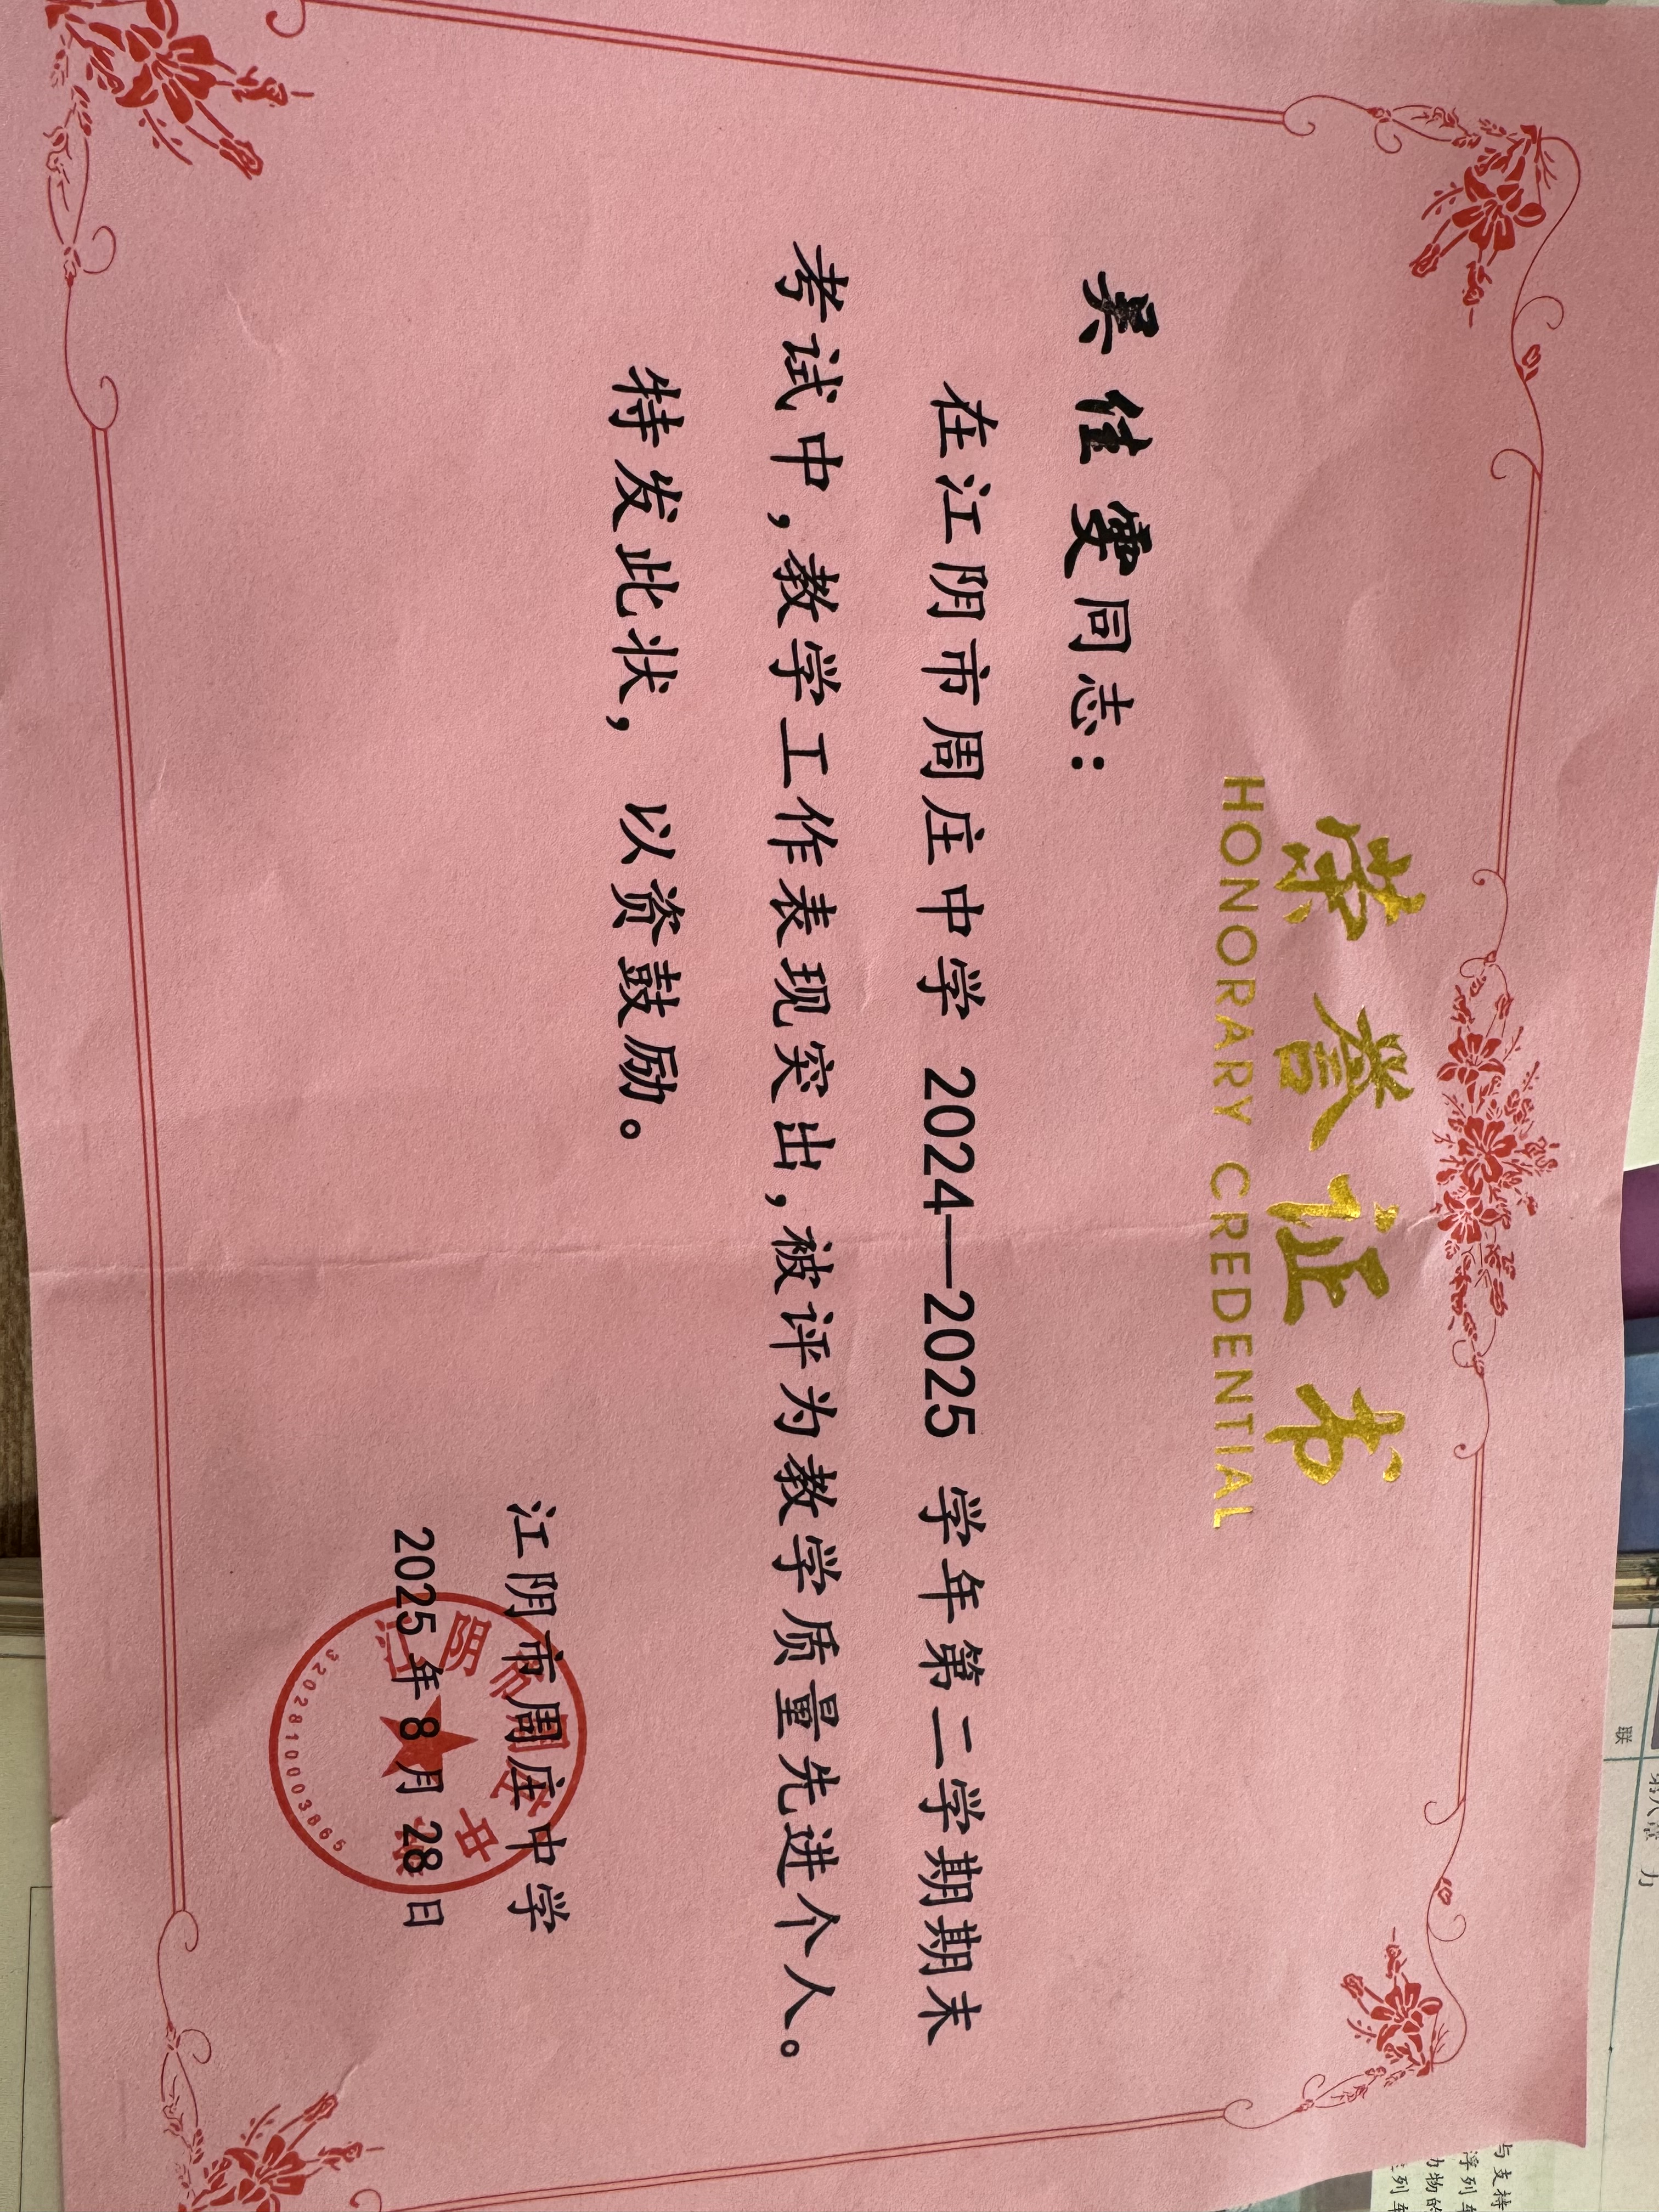 荣誉证书
HONORARY CREDENTIAL
吴佳雯同志：
在江阴市周庄中学 2024—2025 学年第二学期期末
考试中，教学工作表现突出，被评为教学质量先进个人。
特发此状，以资鼓励。
江阴市周庄中学
2025 年 8 月 28 日
江阴市周庄中学
3202810003865
联
第八章 力
与支持
浮列车
力物的